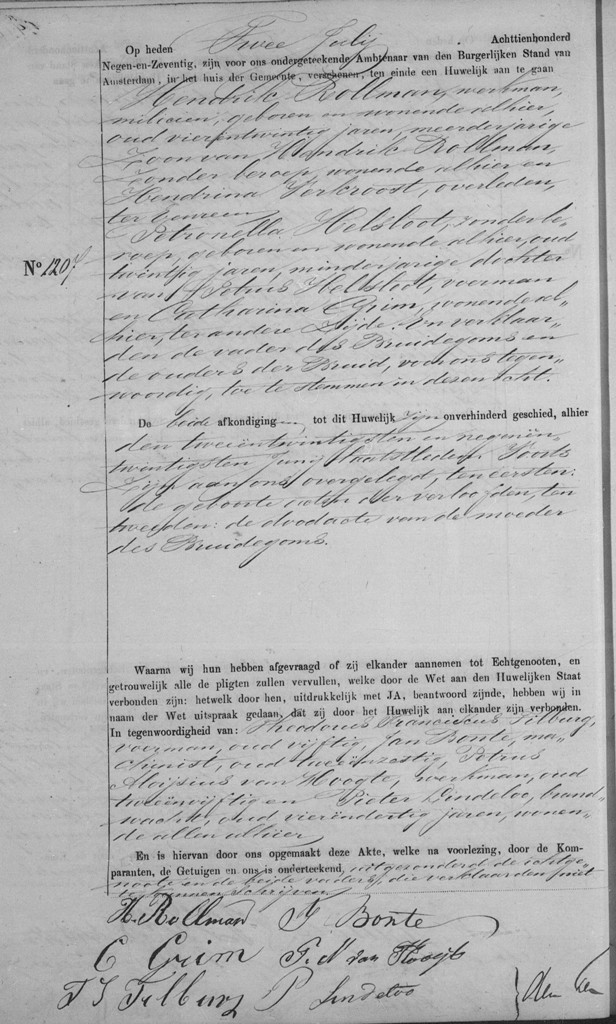 Op heden Twee Julij Achttienhonderd
Negen-en-Zeventig, zijn voor ons ondergeteekende Ambtenaar van den Burgerlijken Stand van
Amsterdam, in het huis der Gemeente, verschenen, ten einde een Huwelijk aan te gaan
Hendrik Rollman, werkman,
milicien, geboren en wonende alhier,
oud vierentwintig jaren, meerderjarige
Zoon van Hendrik Rollman,
zonder beroep, wonende alhier en
Hendrina Verkroost, overleden,
ter eenre en
Petronella Helsloot, zonder be-
roep, geboren en wonende alhier, oud
twintig jaren, minderjarige dochter
No 1207
van Petrus Helsloot, voerman
en Catharina Grim, wonende al-
hier, ter andere Zijde. En verklaar-
den de vader des Bruidegoms en
de ouders der Bruid, voor ons tegen-
woordig, toe te stemmen in dezen echt.
De beide afkondigingen tot dit Huwelijk zijn onverhinderd geschied, alhier
den tweeëntwintigsten en negenën-
twintigsten Junij laatstleden. Voorts
zijn aan ons overgelegd, ten eersten:
de geboorte acten der verloofden, ten
tweeden: de doodacte van de moeder
des Bruidegoms.
Waarna wij hun hebben afgevraagd of zij elkander aannemen tot Echtgenooten, en
getrouwelijk alle de pligten zullen vervullen, welke door de Wet aan den Huwelijken Staat
verbonden zijn: hetwelk door hen, uitdrukkelijk met JA, beantwoord zijnde, hebben wij in
naam der Wet uitspraak gedaan, dat zij door het Huwelijk aan elkander zijn verbonden.
In tegenwoordigheid van: Theodorus Franciscus Tilburg,
voerman, oud vijftig, Jan Bonte, ma-
chinist, oud tweeënzestig, Petrus
Aloijsius van Hoogte, werkman, oud
tweeënvijftig en Pieter Lindeloo, brand-
wacht, oud vierendertig jaren, wonen-
de allen alhier
En is hiervan door ons opgemaakt deze Akte, welke na voorlezing, door de Kom-
paranten, de Getuigen en ons is onderteekend, uitgezonderd de echtge-
noote en de beide vaders, die verklaarden niet
te kunnen schrijven.
H. Rollman J Bonte
C Grim P. A van Hoogte
T F Tilburg P Lindeloo